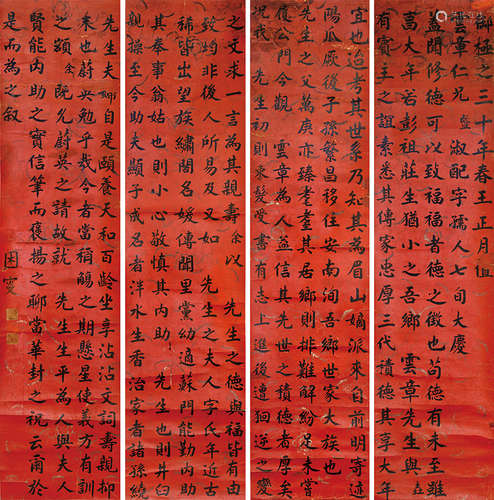 御極之三十年春王正月值
雲章仁兄暨淑配字孺人七旬大慶
蓋聞修德可以致福者德之徵也苟德有未至雖
大年若彭祖莊生猶小之吾鄉 雲章先生與
大之誼素悉其傳家忠厚三代積德其享大年
宜也迨考其世系乃知其為眉山嫡派來自前明寄迹
陽瓜厥後子孫繁昌移住安南澗吾鄉世家大族也
先生之父萬庚亦臻耄耋其居鄉則排難解紛足未嘗
履公門今觀 雲章為人益信其先世之積德者厚矣
況我 先生初則束髮受書有志上進後遭迴逆之變
之文求一言為其親壽余以 先生之德與福皆有由
致均非後人所易及又如 先生之夫人字氏年近古
稀出望族繡閣名媛傳聞里黨幼適蘇門能勤內助
其奉事翁姑也則小心敬慎其內助 先生也則井臼
親操至今助夫顯子成名者泮水生香治家者諸孫繞
先生夫婦自是頤養天和百齡坐享沾沾文詞壽親抑
末也蔚英勉乎哉今者當稱觴之期懸星使義方有訓
之顯余既允蔚英之請故就 先生生平為人與夫人
賢能內助之實信筆而褒揚之聊當華封之祝云爾於
是而為之叙